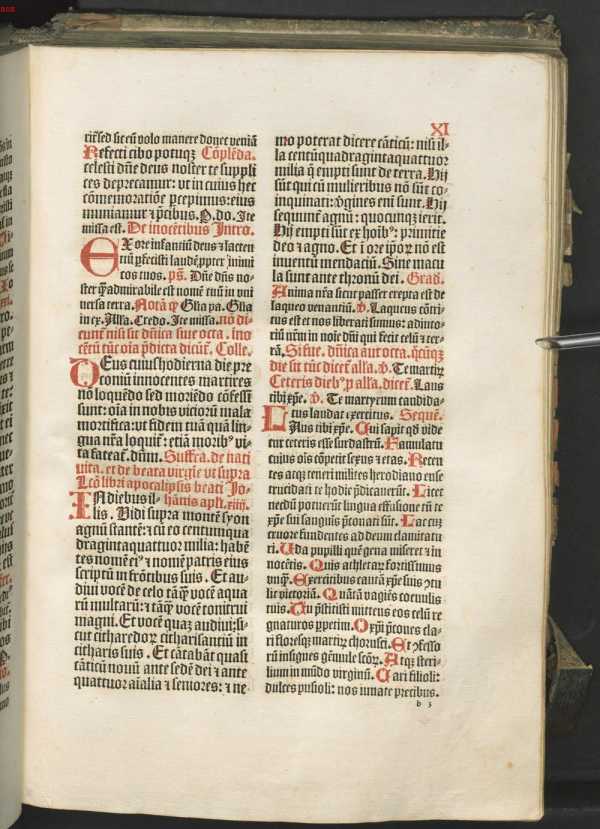 XI
rit̄ sed sic eū volo manere donec veniā
Refecti cibo potuq; Cōplēda.
celesti dn̄e deus noster te suppli
ces deprecamur: vt in cuius hec
cōmemoratiōe ꝑcepimus: eius
muniamur ⁊ p̄cibus. P. do. Ite
missa est. De inocētibus Intro.
EX ore infantiū deus ⁊ lacten
tiū ꝑfecisti laudē ꝓpter īnimi
cos tuos. ps̄. Dn̄e dn̄s no-
ster q̄ admirabile est nomē tuū in vni
versa terra. Notā ꝙ Gl̄ia pa. Gl̄ia
in ex. Allīa. Credo. Ite missa. nō di
cunt̄ nisi sit dn̄ica siue octa. Ino
cētū tūc oīa p̄dicta dicūt̄. Colle.
DEus cuius hodierna die pre
coniū innocentes martires
nō loquēdo sed moriēdo cōfessi
sunt: oīa in nobis vicioꝝ mala
mortifica: vt fidem tuā quā lin
gua nr̄a loquit̄: etiā morib᷒ vi
ta fateat̄. d̄nm̄. Suffra. de nati
uita. et de beata virgīe vt supra
Lcō libri apocalipsis beati Jo-
IN diebus il- hānis apl̄i. xiiij.
lis. Vidi supra montē syon
agnū stantē: ⁊ cū eo centum qua
draginta quattuor milia: habē
tes nomē ei᷒ ⁊ nomē patris eius
scriptū in frōtibus suis. Et au-
diui vocē de celo tāq̄ȝ vocē aqua
rū multarū: ⁊ tāq̄ȝ vocē tonitrui
magni. Et vocē quaȝ audiui: si-
cut citharedoꝝ citharisantiū in
citharis suis. Et cātabāt quasi
cāticū nouū ante sedē dei ⁊ ante
quattuor aīalia ⁊ seniores: ⁊ ne-
mo poterat dicere cāticū: nisi il-
la centū quadraginta quattuor
milia q̄ empti sunt de terra. Hij
sūt qui cū mulieribus nō sūt co-
inquinati: v̄gines eni sunt. Hij
sequunt̄ agnū: quocunq; ierit.
Hij empti sūt ex hoīb᷒: primitie
deo ⁊ agno. Et ī ore ip̄oꝝ nō est
inuentū mendaciū. Sine macu
la sunt ante thronū dei. Grad.
Anima nr̄a sicut passer erepta est de
laqueo venantiū. v̄. Laqueus cōtri
tus est et nos liberati sumus: adiuto
riū nr̄m in noīe dn̄i qui fecit celū ⁊ ter-
rā. Si fue. dn̄ica aut octa. q̄cūq;
die sit tūc dicet̄ all'a. v̄. Te martiꝝ
Ceteris dieb᷒ ꝓ all'a. dicet̄. Laus
tibi xp̄e. v̄. Te martyrum candida-
tus laudat exercitus. Sequē.
LAus tibi xp̄e. Cui sapit qd̄ vide
tur ceteris esse surdastrū. Famulatu
cuius oīs cōpetit sexus ⁊ etas. Recen
tes atq; teneri milites herodiano ense
trucidati te hodie p̄dicauerūt. Licet
nedū potuerūt lingua effusione tn̄ te
xp̄e sui sanguis p̄conati sūt. Lac cuȝ
cruore fundentes ad deum clamitatu
ri. Uda pupilli quē gena miseret ⁊ in
nocētis. Quis athletaꝝ fortissimus
vnq̄ȝ. Exercitibus cautā xp̄e suis ꝯtu
lit victoriā. Quātā vagiēs coeuulis
tuis. Tu p̄stitisti mittens eos celū re
gnaturos ꝑpetim. O xp̄i p̄cones cla-
ri floresq; martiꝝ chorusci. Et ꝯfesso
rū insignes gēmule scōꝝ. Atq; steri-
lium in mūdo virginū. Cari filioli:
dulces pusioli: nos iuuate precibus.
b 3